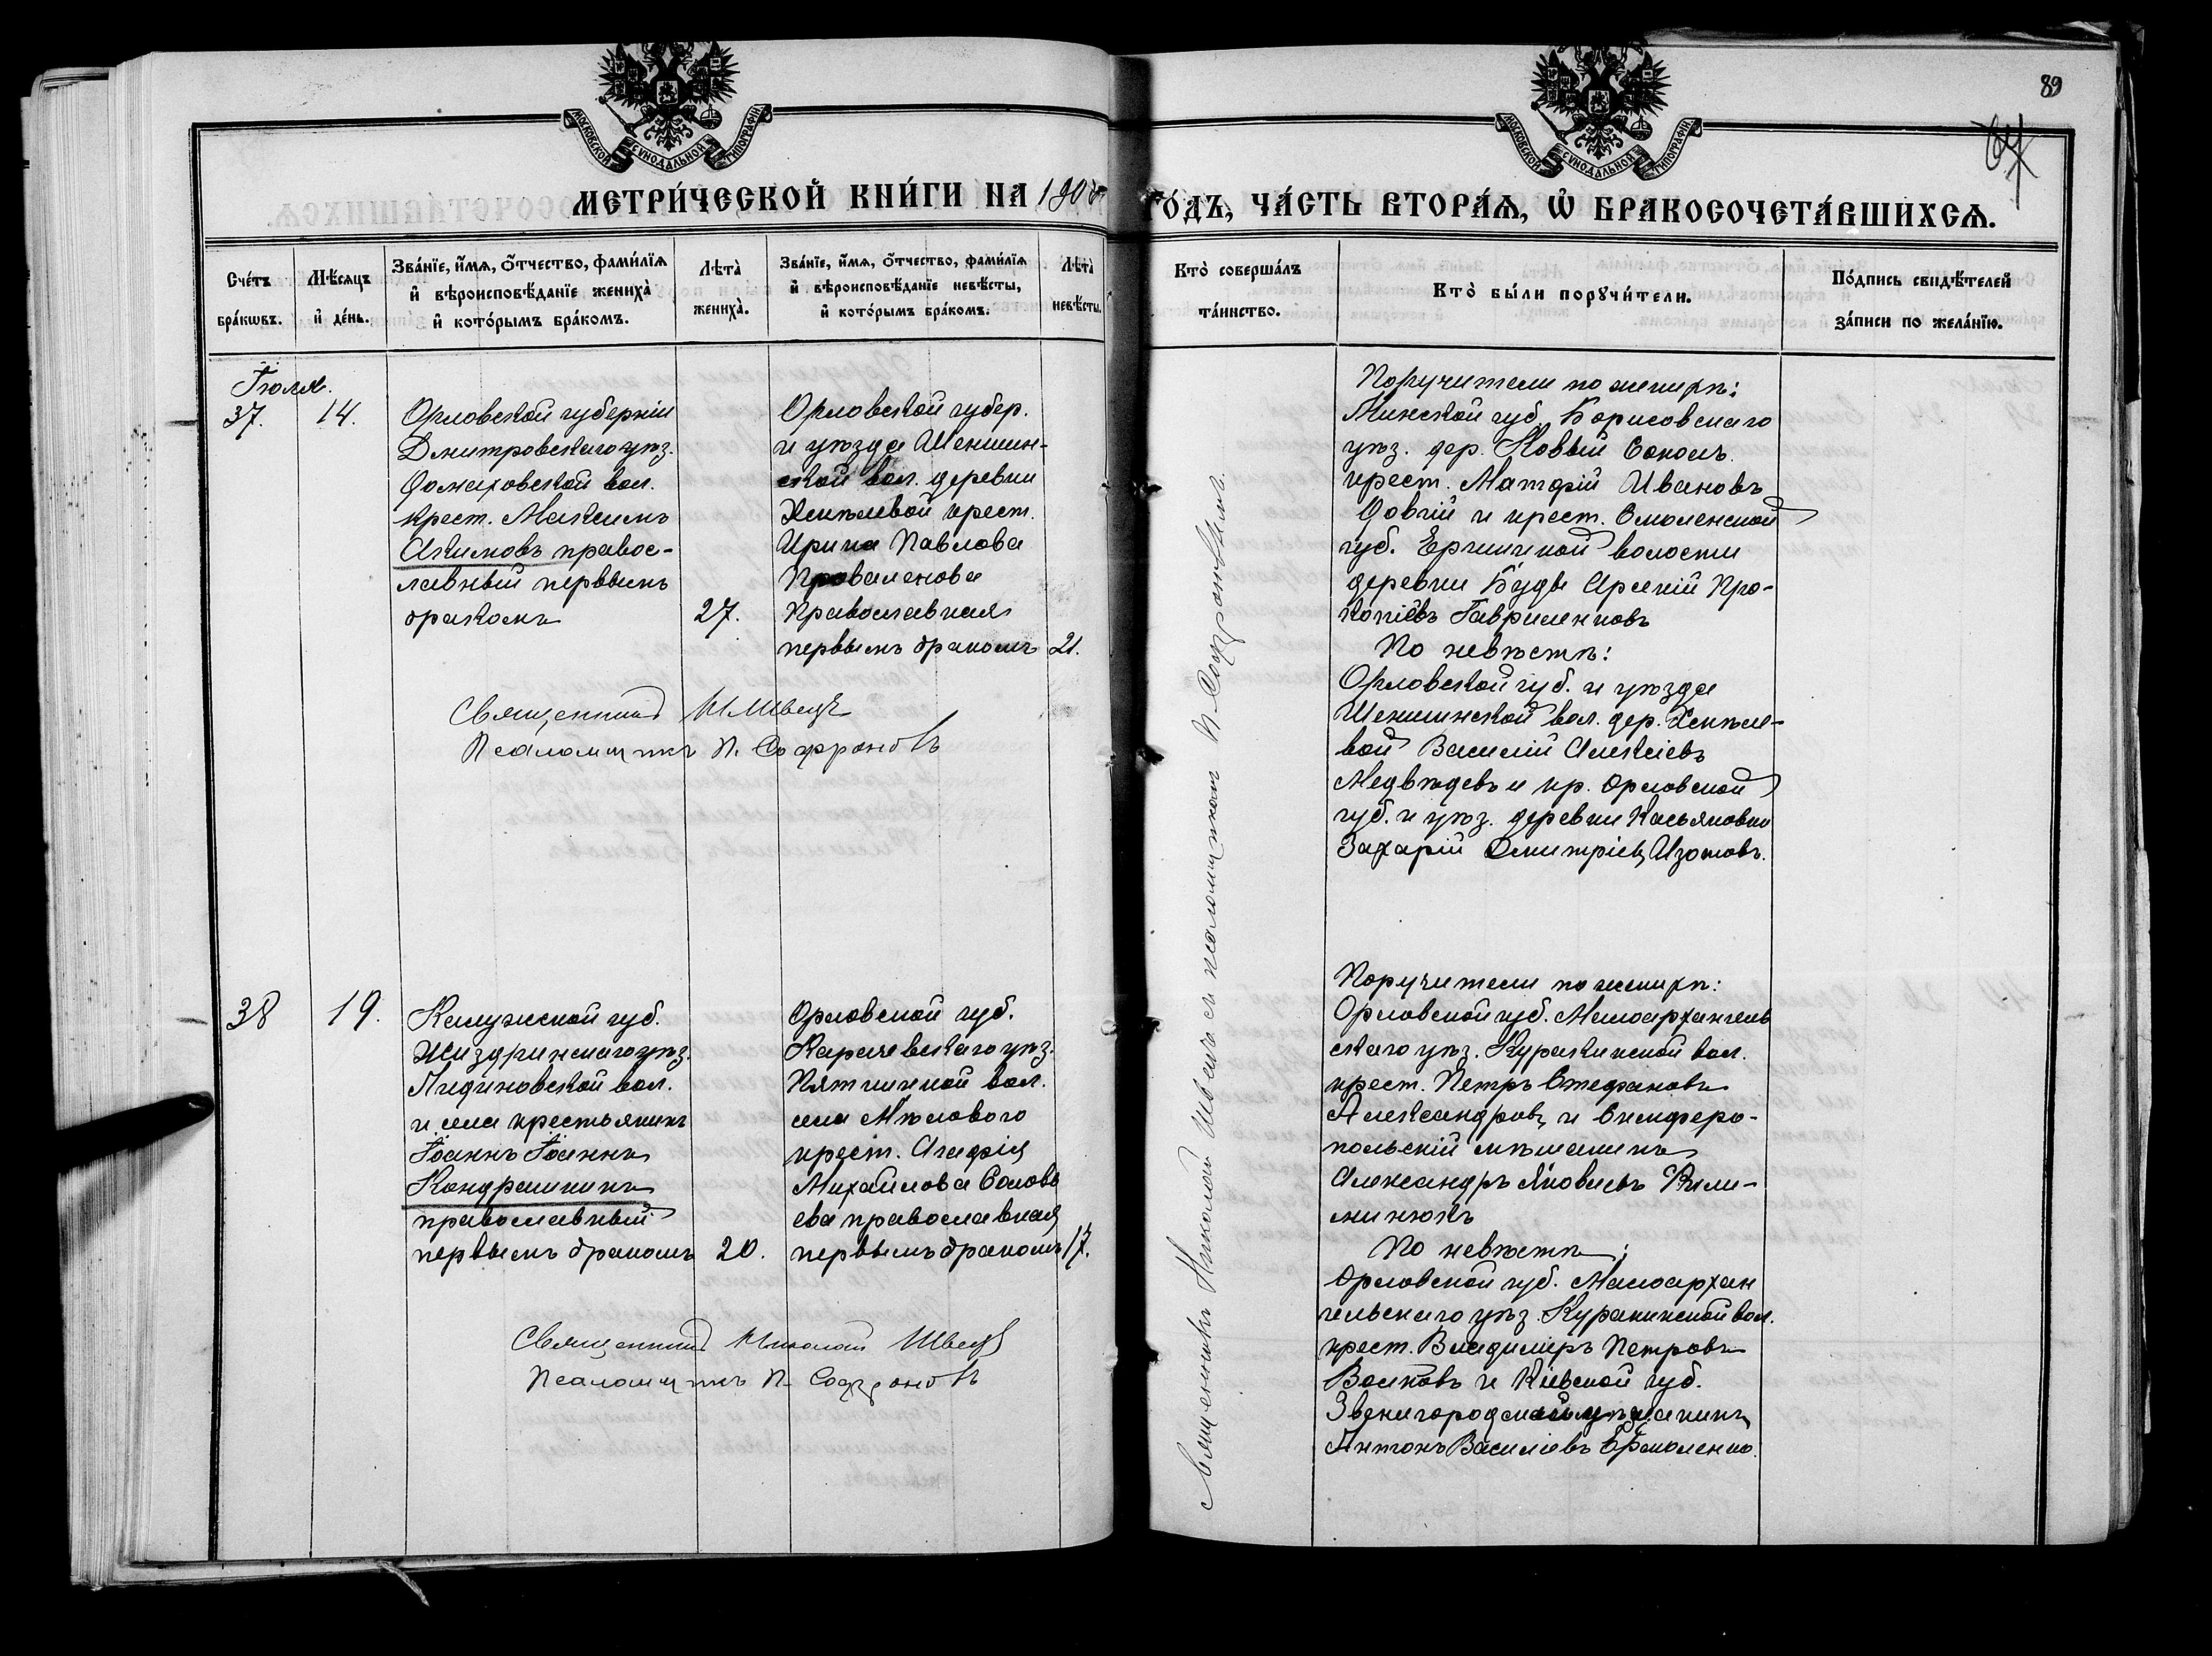 89
МОСКОВСКОЙ СѴНОДАЛЬНОЙ ТИПОГРАФІИ
МОСКОВСКОЙ СѴНОДАЛЬНОЙ ТИПОГРАФІИ
МЕТРИ́ЧЕСКОЙ КНИ́ГИ НА 190
ГО́ДЪ, ЧА́СТЬ ВТОРА́Ѧ, Ѽ БРАКОСОЧЕТА́ВШИХСѦ.
Сче́тъ бра́кѡвъ.
Мѣ́сяцъ и҆ де́нь.
Зва́нїе, и҆́мѧ, ѻ҆́тчество, фами́лїѧ
и҆ вѣроисповѣ́данїе жениха̀
и҆ кото́рымъ бра́комъ.
Лѣта̀ жениха̀.
Зва́нїе, и҆́мѧ, ѻ҆́тчество, фами́лїѧ
и҆ вѣроисповѣ́данїе невѣ́сты,
и҆ кото́рымъ бра́комъ.
Лѣта̀ невѣ́сты.
Кто̀ соверша́лъ
та́инство.
Кто̀ бы́ли порꙋчи́тели.
По́дпись свидѣ́телей
за́писи по жела́нїю.
Іюля.
37.
14.
Орловской губерніи
Дмитровскаго уѣз.
Домаховской вол.
крест. Максимъ
Акимовъ правос-
лавный первымъ
бракомъ
27.
Орловской губер.
и уѣзда Шеншин-
ской вол. деревни
крест.
Ирина Павлова
Православная
первымъ бракомъ
21.
Священникъ Н. Швецъ
Псаломщикъ П. Софроновъ
Поручители по женихѣ:
Минской губ. Борисовскаго
уѣз. дер. Новый Соколъ
крест. Матфій Ивановъ
Довгій и крест. Смоленской
губ. волости
деревни Буды Арсеній Про-
копіевъ Гавриленковъ
По невѣстѣ:
Орловской губ. и уѣзда
Шеншинской вол. дер.
вой Василій Алексіевъ
Медвѣдевъ и кр. Орловской
губ. и уѣз. деревни Касьяновки
Захарій Дмитріевъ Изотовъ.
38
19.
Калужской губ.
Жиздринскаго уѣз.
вол.
и села крестьянинъ
Іоаннъ Іоаннъ
Кондрашинъ
православный
первымъ бракомъ
20.
Орловской губ.
Карачевскаго уѣз.
Пятницкой вол.
села Мѣлового
крест. Агафія
Михайлова Соловь
ева православная
первымъ бракомъ
17.
Священникъ Николай Швецъ
Псаломщикъ П. Софроновъ
Поручители по женихѣ:
Орловской губ. Малоархангель
скаго уѣз. Куракинской вол.
крест. Петръ Стефановъ
Александровъ и Симферо-
польскій мѣщанинъ
Александръ Яковлевъ Фили-
минюкъ
По невѣстѣ:
Орловской губ. Малоархан
гельскаго уѣз. Куракинской вол.
крест. Владимиръ Петровъ
Волковъ и Кіевской губ.
Антонъ Василіевъ Ермоленко.
Священникъ Николай Швецъ съ псаломщикомъ П. Софроновымъ.